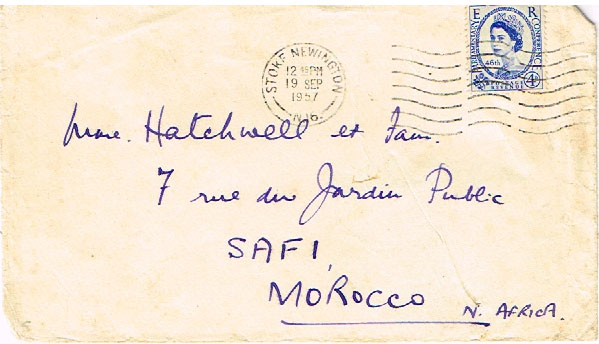 E R
PARLIAMENTARY CONFERENCE
46th
4D
POSTAGE
REVENUE
STOKE NEWINGTON
12 15 PM
19 SEP
1957
N.16.
Mme. Hatchwell et Fam.
7 rue du Jardin Public
SAFI,
MOROCCO N. AFRICA.